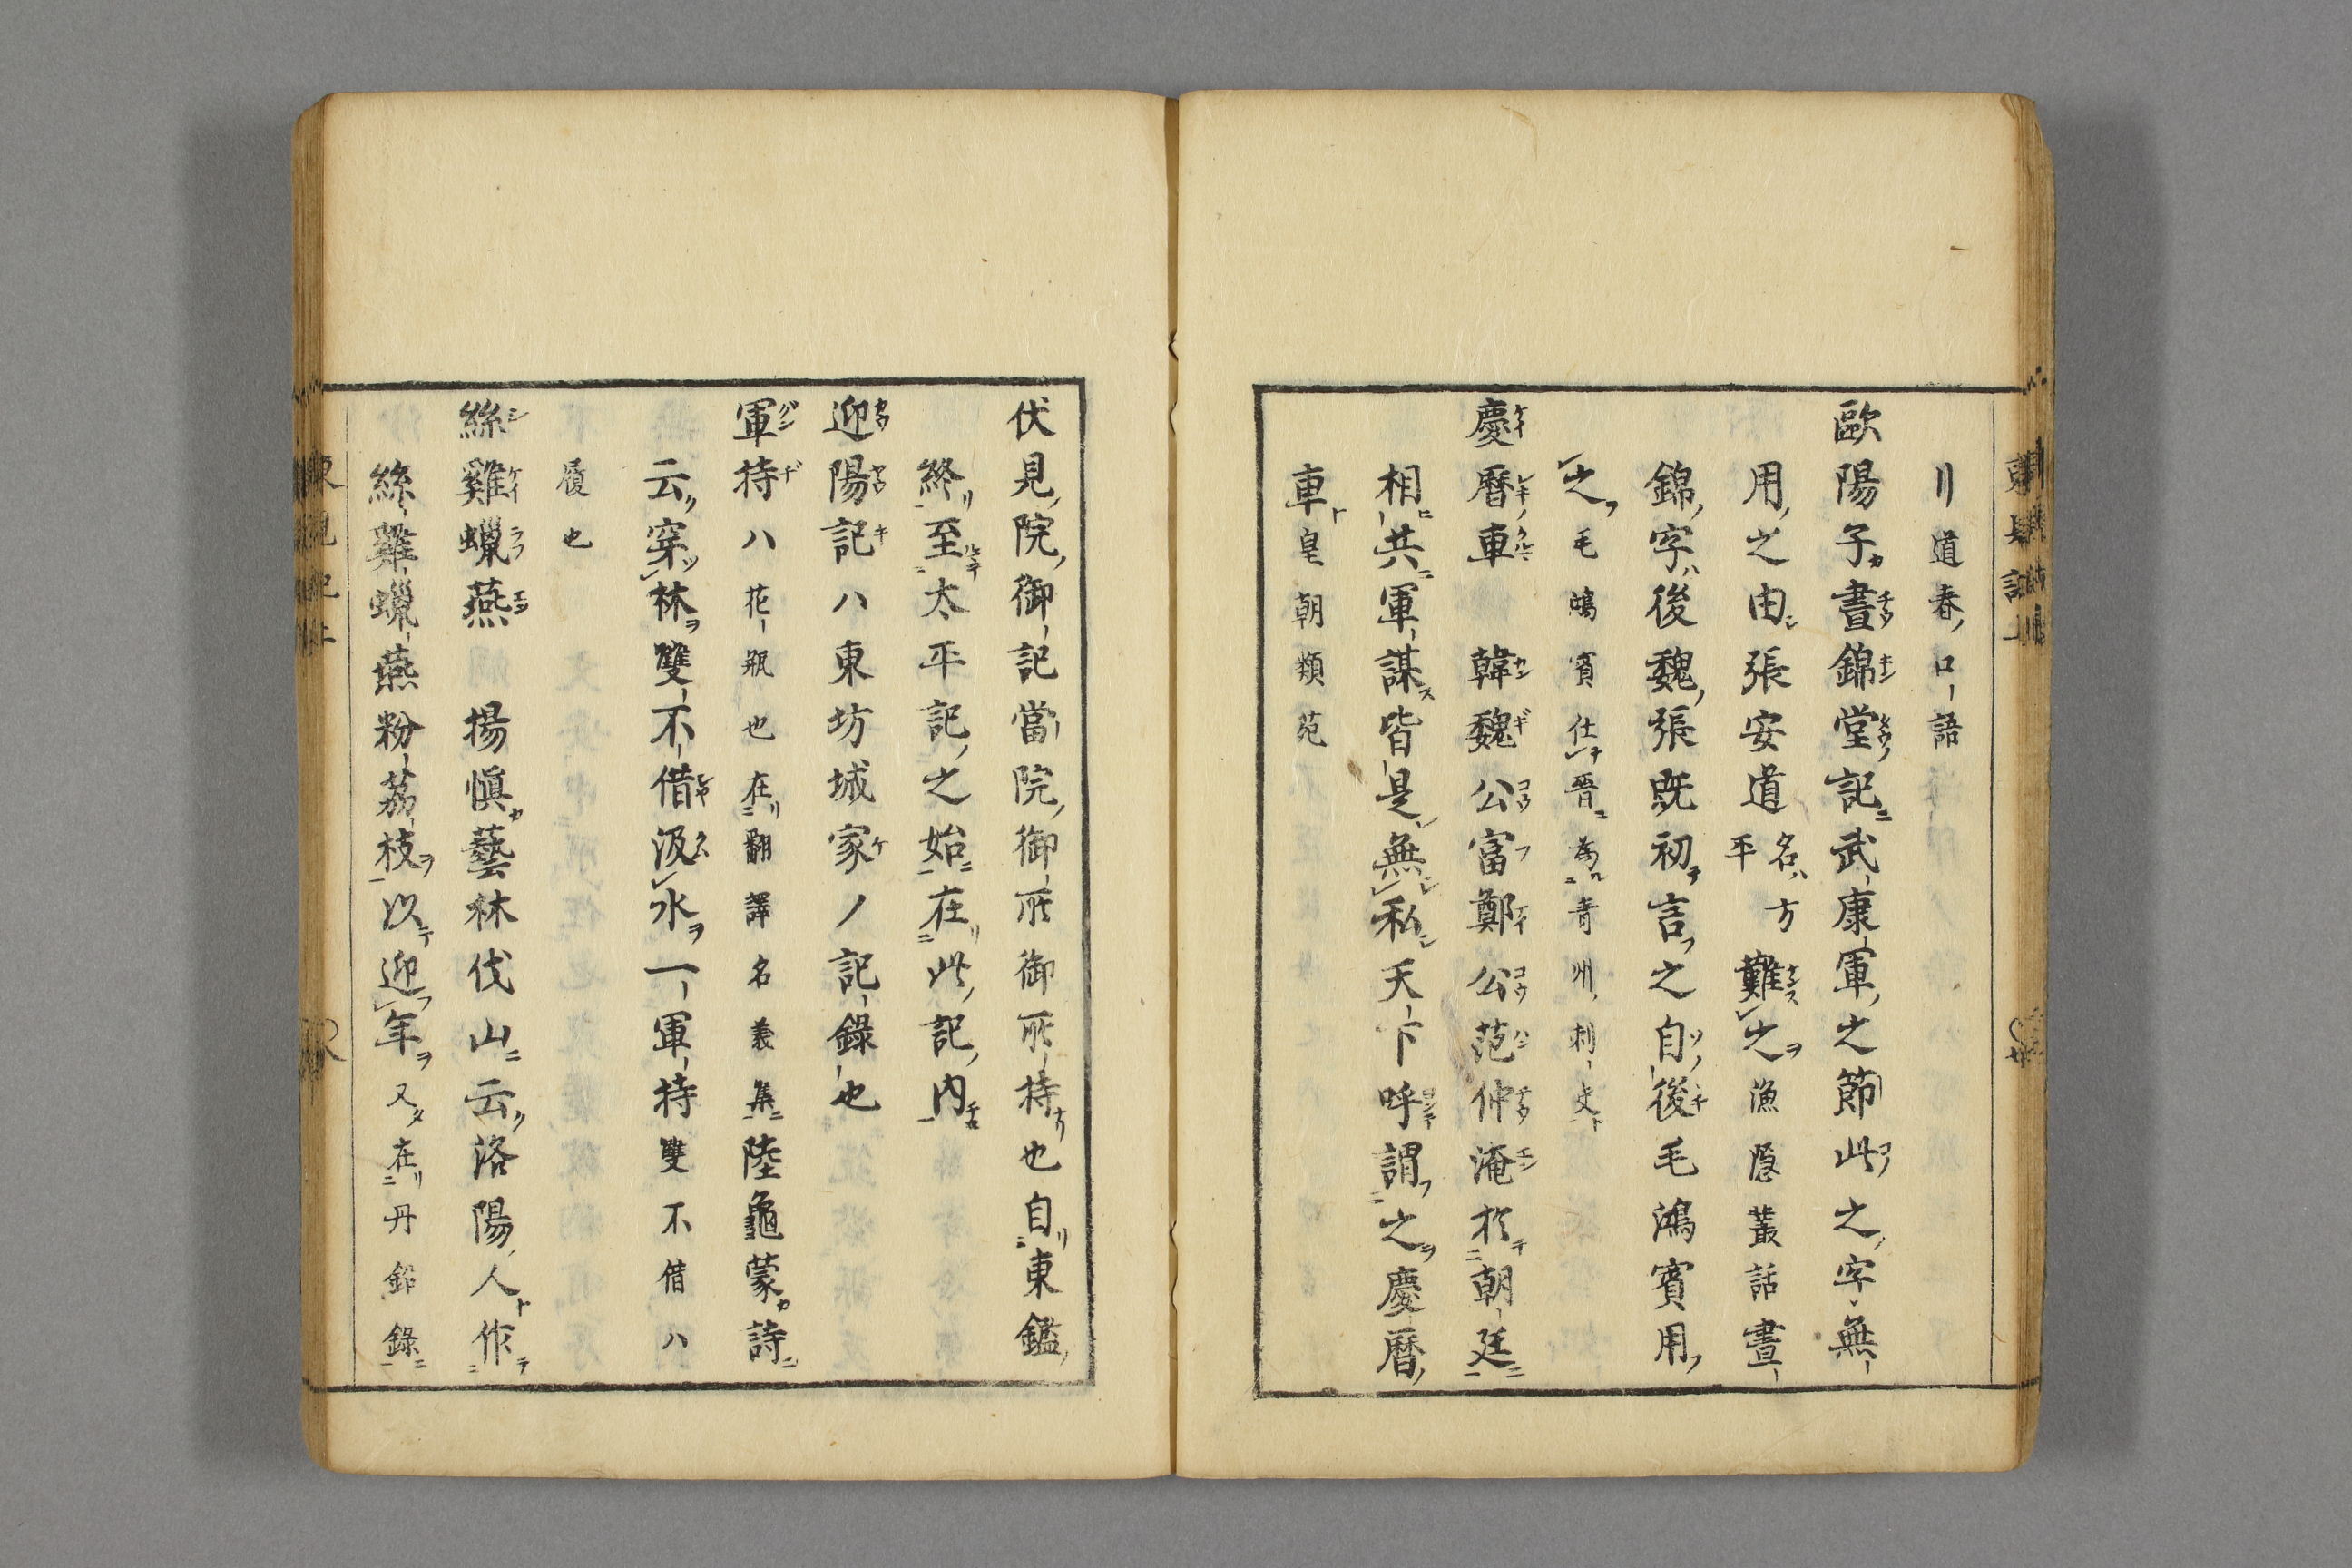 〃道春ノ口語
歐陽子カ晝錦堂記ニ武康軍ノ之節此ノ之字無
用ノ之由シ張安道名ハ方平難ス之ヲ漁隠叢話晝
錦ノ字ハ後魏ノ張既初テ言フ之自後毛鴻賓用フ
之ヲ毛鴻賓仕テ晉ニ為ル青州ノ刺史ト
慶暦ノ車 韓魏公富鄭公范仲淹於テ朝廷ニ
相ヒ共ニ軍謀ス皆是レ無シ私シ天下呼謂フ之ヲ慶暦ノ
車ト皇朝類苑
伏見ノ院ノ御記當院ノ御所御所持ナリ也自リ東鑑ノ
終リ至ルマテ太平記ノ之始ニ在リ此ノ記ノ内ニ
迎陽記ハ東坊城家ノ記錄也
軍持ハ花瓶也在リ翻譯名義集ニ陸龜蒙カ詩ニ
云ク穿ツ林ヲ雙不借汲ム水ヲ一軍持雙不借ハ
履也
絲雞蠟燕 揚愼カ藝林伐山ニ云ク洛陽ノ人ト作テ
絲雞蠟燕粉荔枝ヲ以テ迎フ年ヲ又タ在リ丹鉛錄ニ